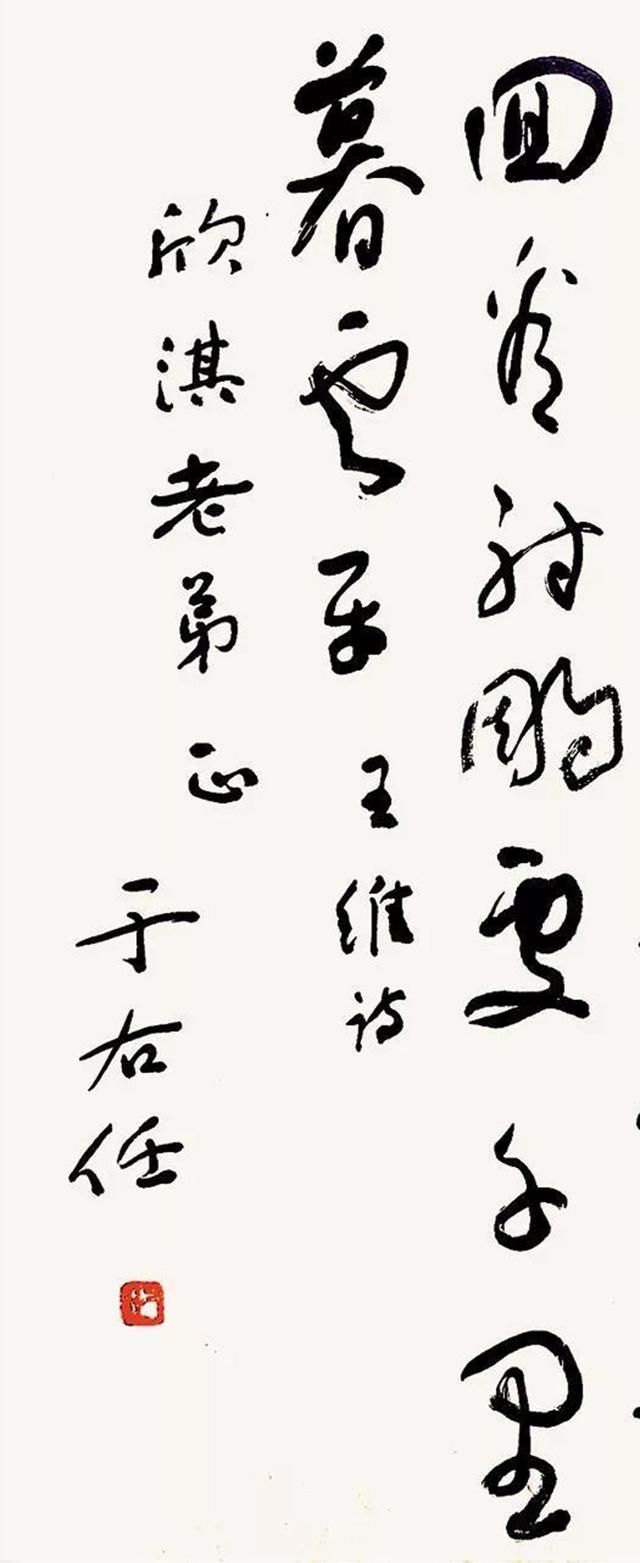 回看射雕處千里
暮雲平 王維詩
欣淇老弟 正
于右任